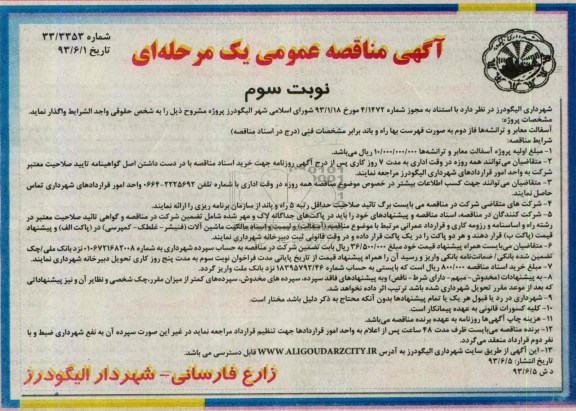 شماره ۳۳/۳۳۵۳
تاریخ ۹۳/۶/۱
آگهی مناقصه عمومی یک مرحله‌ای
نوبت سوم
شهرداری الیگودرز در نظر دارد با استناد به مجوز شماره ۴/۱۴۷۲ مورخ ۹۳/۱/۱۸ شورای اسلامی شهر الیگودرز پروژه مشروح ذیل را به شخص حقوقی واجد الشرایط واگذار نماید.
مشخصات پروژه:
آسفالت معابر و ترانشه‌ها فاز دوم به صورت فهرست بها راه و باند برابر مشخصات فنی (درج در اسناد مناقصه)
شرایط مناقصه:
۱- مبلغ اولیه پروژه آسفالت معابر و ترانشه‌ها ۱۰/۰۰۰/۰۰۰/۰۰۰ ریال می‌باشد.
۲- متقاضیان می‌توانند همه روزه در وقت اداری به مدت ۷ روز کاری پس از درج آگهی روزنامه جهت خرید اسناد مناقصه با در دست داشتن اصل گواهینامه تایید صلاحیت معتبر
شرکت به واحد امور قراردادهای شهرداری الیگودرز مراجعه نمایند.
۳- متقاضیان می‌توانند جهت کسب اطلاعات بیشتر در خصوص موضوع مناقصه همه روزه در وقت اداری با شماره تلفن ۲۲۲۵۶۹۲-۰۶۶۴ واحد امور قراردادهای شهرداری تماس
حاصل نمایند.
۴- شرکت های متقاضی شرکت در مناقصه می بایست برگ تائید صلاحیت حداقل رتبه ۵ راه و باند از سازمان برنامه ریزی را ارائه نمایند.
۵- شرکت کنندگان در مناقصه، اسناد مناقصه و پیشنهادهای خود را باید در پاکت‌های جداگانه لاک و مهر شده شامل تضمین شرکت در مناقصه و گواهی تائید صلاحیت معتبر در
رشته راه و اساسنامه و رزومه کاری و قرارداد عمرانی مرتبط با موضوع مناقصه (آسفالت) و لیست و اسناد مالکیت ماشین آلات (فنیشر- غلطک- کمپرسی) در (پاکت الف) و پیشنهاد
قیمت (پاکت ب) قرار دهند و هر دو پاکت را در یک پاکت قرار داده و در وقت قانونی ثبت دبیرخانه شهرداری نمایند.
۶- متقاضیان می‌بایست همراه پیشنهاد قیمت خود مبلغ ۳۶/۵۰۰/۰۰۰ ریال بابت تضمین شرکت در مناقصه به حساب سپرده شهرداری به شماره ۰۱۰۶۷۲۱۶۸۲۰۰۸ نزد بانک ملی/چک
تضمین شده بانکی/ ضمانت‌نامه بانکی واریز و رسید آن را همراه پیشنهاد قیمت از تاریخ پایانی مدت فراخوان نوبت سوم به مدت پنج روز کاری تحویل دبیرخانه شهرداری نمایند.
۷- مبلغ خرید اسناد مناقصه ۸۰۰/۰۰۰ ریال است که بایستی به حساب شماره ۱۸۳۹۵۷۹۲/۴۶ نزد بانک ملت واریز گردد.
۸- به پیشنهادات (مخدوش- مبهم- دارای شرط - ناقص) و به پیشنهادهای فاقد سپرده، سپرده های مخدوش، سپرده‌های کمتر از میزان مقرر، چک شخصی و نظایر آن و نیز پیشنهاداتی
که بعد از موعد مقرر تحویل شهرداری شده باشد ترتیب اثر داده نخواهد شد.
۹- شهرداری در رد یا قبول هر یک یا تمام پیشنهادها بدون آنکه محتاج به ذکر دلیل باشد مختار است.
۱۰- کلیه کسورات قانونی به عهده پیمانکار است.
۱۱- هزینه چاپ آگهی‌ها روزنامه به عهده برنده مناقصه می‌باشد.
۱۲- برنده مناقصه می‌بایست ظرف مدت ۴۸ ساعت پس از اعلام به واحد امور قراردادها جهت تنظیم قرارداد مراجعه نماید در غیر این صورت سپرده آن به نفع شهرداری ضبط و با
نفر دوم قرارداد منعقد می‌گردد.
۱۳- این آگهی از طریق سایت شهرداری الیگودرز به آدرس WWW.ALIGOUDARZCITY.IR قابل دسترسی می باشد.
تاریخ انتشار: ۹۳/۶/۵
د ش ۹۳/۶/۵
زارع فارسانی- شهردار الیگودرز